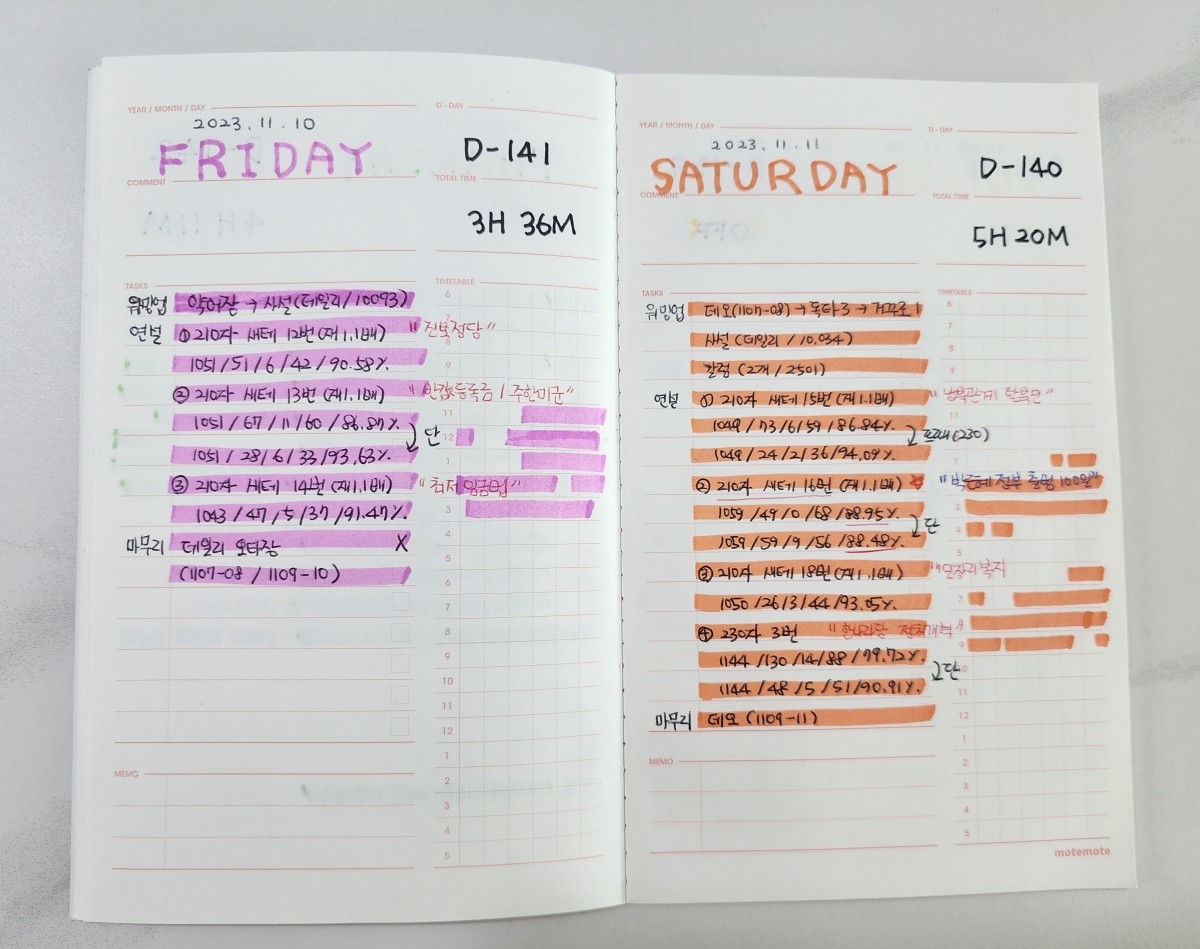 YEAR / MONTH / DAY
D - DAY
2023.11.10
FRIDAY
D-141
COMMENT
TOTAL TIME
3H 36M
TASKS
TIMETABLE
워밍업 약어장 → 사설(데일리/10093)
연설 ① 210자 새테 12번(재1.1배) "진보정당"
1051/51/6/42/90.58%
② 210자 새테 13번(재1.1배) "반값등록금 / 주한미군"
1051/67/11/60/86.87%
단
1051/28/6/33/93.63%
③ 210자 새테 14번(재1.1배) "최저임금법"
1043/47/5/37/91.47%
마무리 데일리 오타장 X
(1107-08 / 1109-10)
6
7
8
9
11
12
1
3
4
5
6
7
8
9
10
11
12
1
2
3
4
5
MEMO
YEAR / MONTH / DAY
D - DAY
2023.11.11
SATURDAY
D-140
COMMENT
TOTAL TIME
5H 20M
TASKS
TIMETABLE
워밍업 데오(1107-08) → 독다3 → 거꾸로1
사설(데일리 / 10.034)
칼럼(2개 / 2501)
연설 ① 210자 새테 15번(재1.1배) "남북관계
1049/73/6/59/86.84%
프레(230)
1049/24/2/36/94.09%
② 210자 새테 16번(재1.1배) "박근혜 정부 출범 100일"
1059/49/0/68/88.95%
단
1059/59/9/56/88.48%
③ 210자 새테 18번(재1.1배)
1050/26/3/44/93.05%
④ 230자 3번 "한나라당 정치개혁"
1144/130/14/88/79.72%
단
1144/48/5/51/90.91%
마무리 데오(1109-11)
6
7
8
9
1
3
4
5
7
8
9
10
11
12
1
2
3
4
5
MEMO
motemote